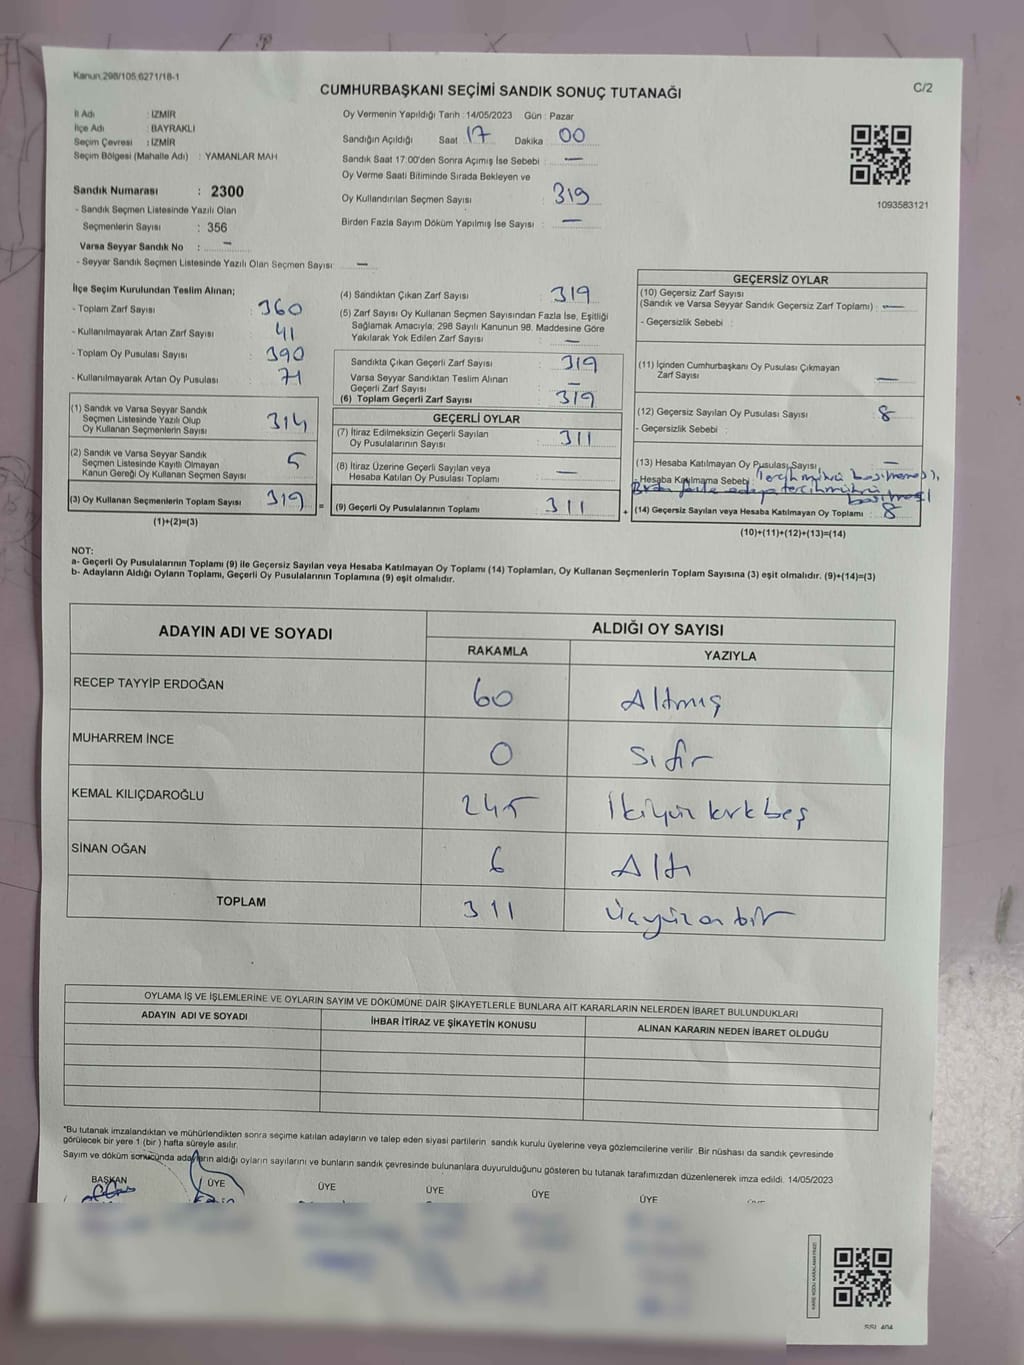 Kanun:298/105;6271/18-1
C/2
CUMHURBAŞKANI SEÇİMİ SANDIK SONUÇ TUTANAĞI
İl Adı : İZMİR
İlçe Adı : BAYRAKLI
Seçim Çevresi : İZMİR
Seçim Bölgesi (Mahalle Adı) : YAMANLAR MAH
Sandık Numarası : 2300
- Sandık Seçmen Listesinde Yazılı Olan
Seçmenlerin Sayısı : 356
Varsa Seyyar Sandık No : –
- Seyyar Sandık Seçmen Listesinde Yazılı Olan Seçmen Sayısı: –
Oy Vermenin Yapıldığı Tarih : 14/05/2023 Gün : Pazar
Sandığın Açıldığı Saat 17 Dakika 00
Sandık Saat 17:00'den Sonra Açımış İse Sebebi : –
Oy Verme Saati Bitiminde Sırada Bekleyen ve
Oy Kullandırılan Seçmen Sayısı : 319
Birden Fazla Sayım Döküm Yapılmış İse Sayısı : –
1093583121
İlçe Seçim Kurulundan Teslim Alınan;
- Toplam Zarf Sayısı : 360
- Kullanılmayarak Artan Zarf Sayısı : 41
- Toplam Oy Pusulası Sayısı : 390
- Kullanılmayarak Artan Oy Pusulası : 71
(1) Sandık ve Varsa Seyyar Sandık
Seçmen Listesinde Yazılı Olup
Oy Kullanan Seçmenlerin Sayısı : 314
(2) Sandık ve Varsa Seyyar Sandık
Seçmen Listesinde Kayıtlı Olmayan
Kanun Gereği Oy Kullanan Seçmen Sayısı : 5
(3) Oy Kullanan Seçmenlerin Toplam Sayısı : 319
(1)+(2)=(3)
(4) Sandıktan Çıkan Zarf Sayısı : 319
(5) Zarf Sayısı Oy Kullanan Seçmen Sayısından Fazla İse, Eşitliği
Sağlamak Amacıyla, 298 Sayılı Kanunun 98. Maddesine Göre
Yakılarak Yok Edilen Zarf Sayısı : –
Sandıkta Çıkan Geçerli Zarf Sayısı : 319
Varsa Seyyar Sandıktan Teslim Alınan
Geçerli Zarf Sayısı : –
(6) Toplam Geçerli Zarf Sayısı : 319
GEÇERLİ OYLAR
(7) İtiraz Edilmeksizin Geçerli Sayılan
Oy Pusulalarının Sayısı : 311
(8) İtiraz Üzerine Geçerli Sayılan veya
Hesaba Katılan Oy Pusulası Toplamı : –
= (9) Geçerli Oy Pusulalarının Toplamı : 311
GEÇERSİZ OYLAR
(10) Geçersiz Zarf Sayısı
(Sandık ve Varsa Seyyar Sandık Geçersiz Zarf Toplamı) : –
- Geçersizlik Sebebi :
(11) İçinden Cumhurbaşkanı Oy Pusulası Çıkmayan
Zarf Sayısı : –
(12) Geçersiz Sayılan Oy Pusulası Sayısı : 8
- Geçersizlik Sebebi :
(13) Hesaba Katılmayan Oy Pusulası Sayısı : –
- Hesaba Katılmama Sebebi : Tercih mührü basılmaması,
Birden fazla adaya tercih mührü
basılması
+ (14) Geçersiz Sayılan veya Hesaba Katılmayan Oy Toplamı : 8
(10)+(11)+(12)+(13)=(14)
NOT:
a- Geçerli Oy Pusulalarının Toplamı (9) ile Geçersiz Sayılan veya Hesaba Katılmayan Oy Toplamı (14) Toplamları, Oy Kullanan Seçmenlerin Toplam Sayısına (3) eşit olmalıdır. (9)+(14)=(3)
b- Adayların Aldığı Oyların Toplamı, Geçerli Oy Pusulalarının Toplamına (9) eşit olmalıdır.
ADAYIN ADI VE SOYADI ALDIĞI OY SAYISI
RAKAMLA YAZIYLA
RECEP TAYYİP ERDOĞAN 60 Altmış
MUHARREM İNCE 0 Sıfır
KEMAL KILIÇDAROĞLU 245 İkiyüz kırkbeş
SİNAN OĞAN 6 Altı
TOPLAM 311 Üçyüz on bir
OYLAMA İŞ VE İŞLEMLERİNE VE OYLARIN SAYIM VE DÖKÜMÜNE DAİR ŞİKAYETLERLE BUNLARA AİT KARARLARIN NELERDEN İBARET BULUNDUKLARI
ADAYIN ADI VE SOYADI İHBAR İTİRAZ VE ŞİKAYETİN KONUSU ALINAN KARARIN NEDEN İBARET OLDUĞU
*Bu tutanak imzalandıktan ve mühürlendikten sonra seçime katılan adayların ve talep eden siyasi partilerin sandık kurulu üyelerine veya gözlemcilerine verilir. Bir nüshası da sandık çevresinde
görülecek bir yere 1 (bir) hafta süreyle asılır.
Sayım ve döküm sonucunda adayların aldığı oyların sayılarını ve bunların sandık çevresinde bulunanlara duyurulduğunu gösteren bu tutanak tarafımızdan düzenlenerek imza edildi. 14/05/2023
BAŞKAN ÜYE ÜYE ÜYE ÜYE ÜYE